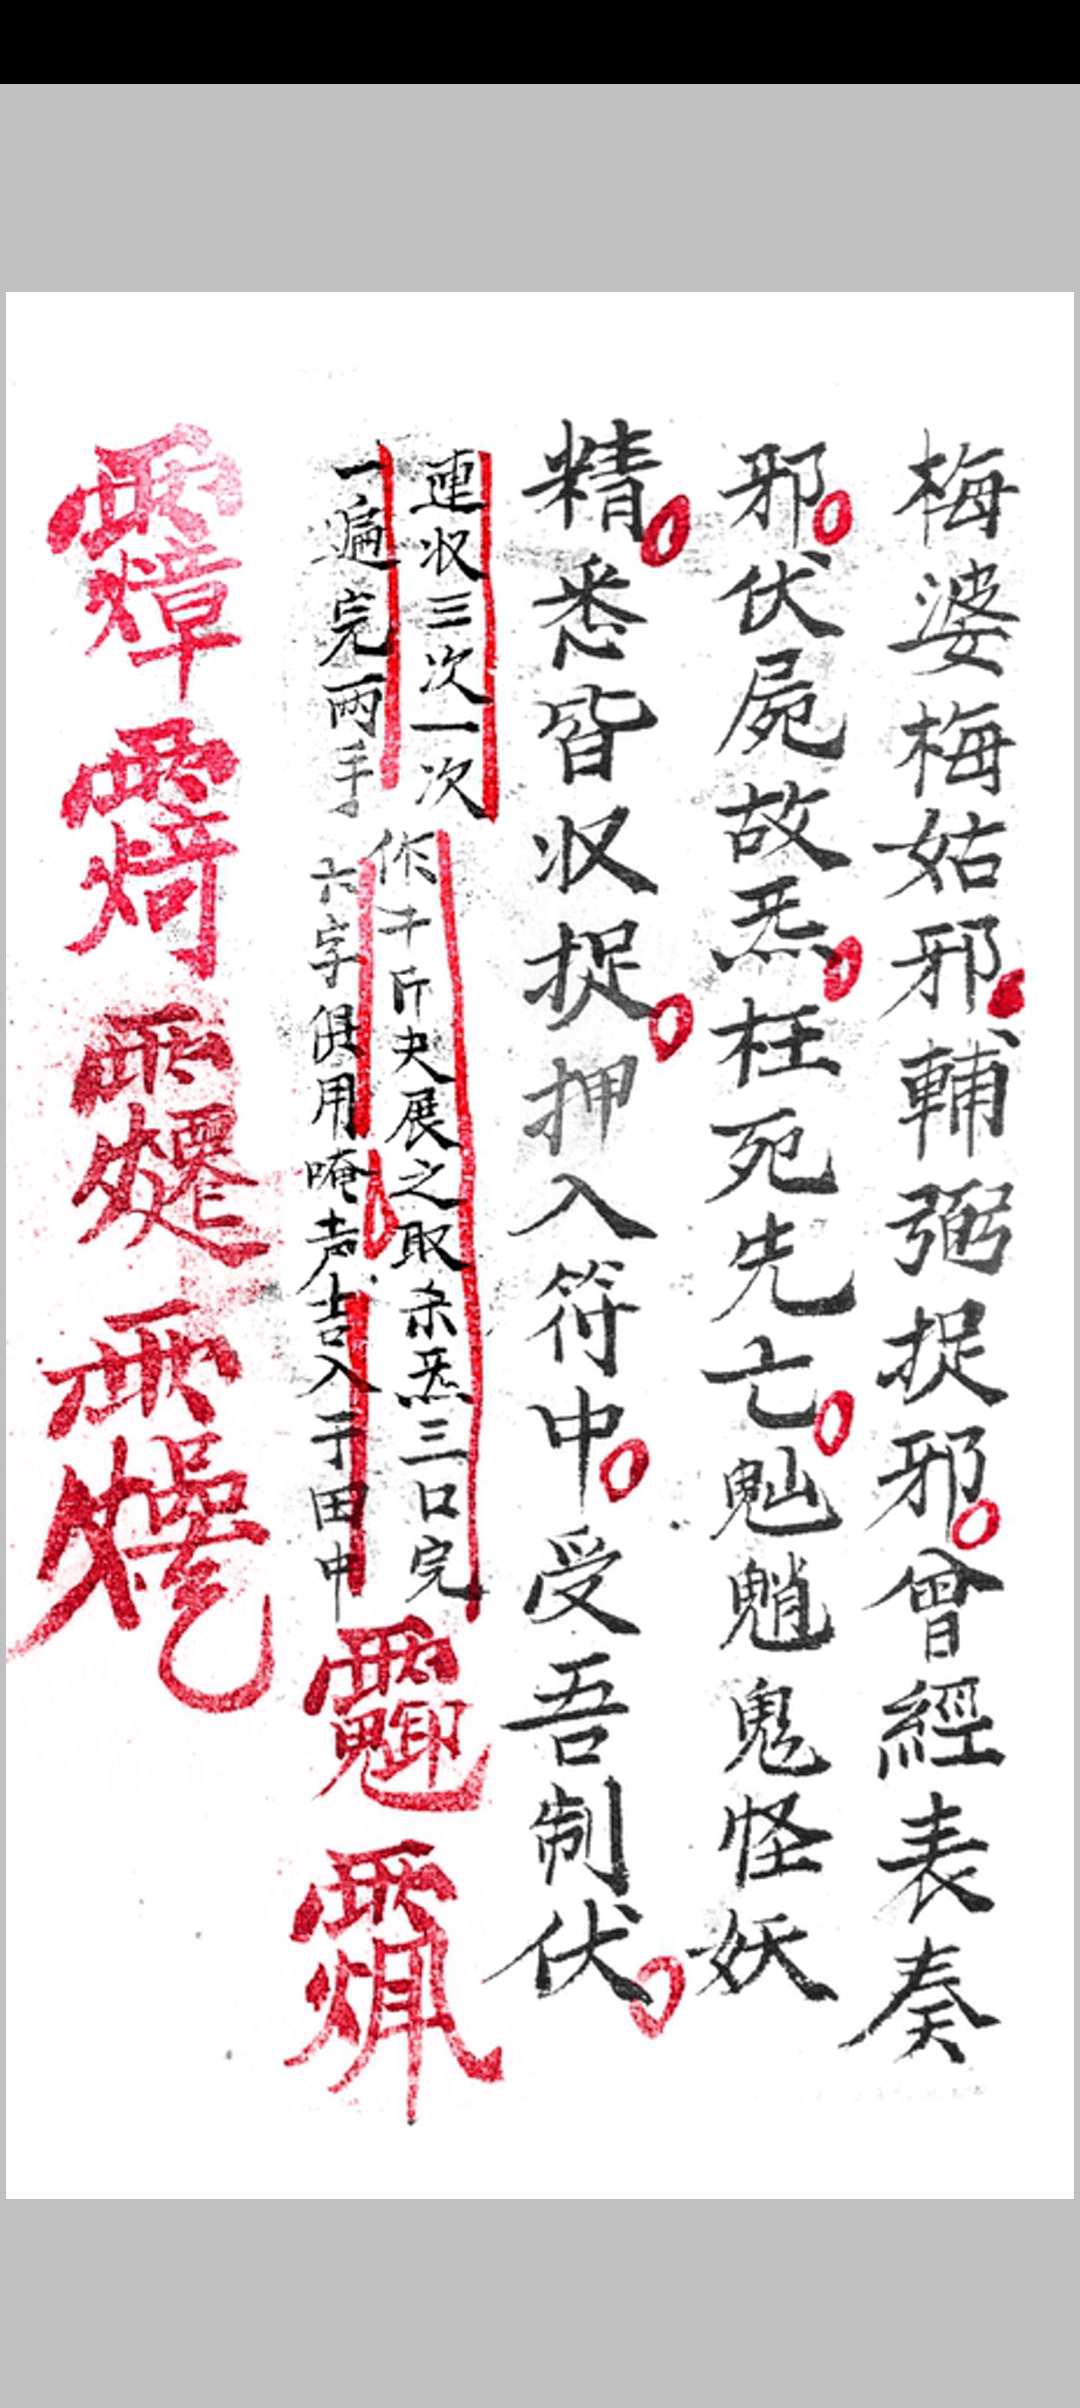 梅婆梅姑邪輔弼捉邪曾經表奏
邪伏屍故炁枉死先亡魈鬼怪妖
精悉皆収捉押入符中受吾制伏
連収三次一次
一遍完兩手
作千斤夬展之取杀炁三口完
六字俱用唵声吉入于田中